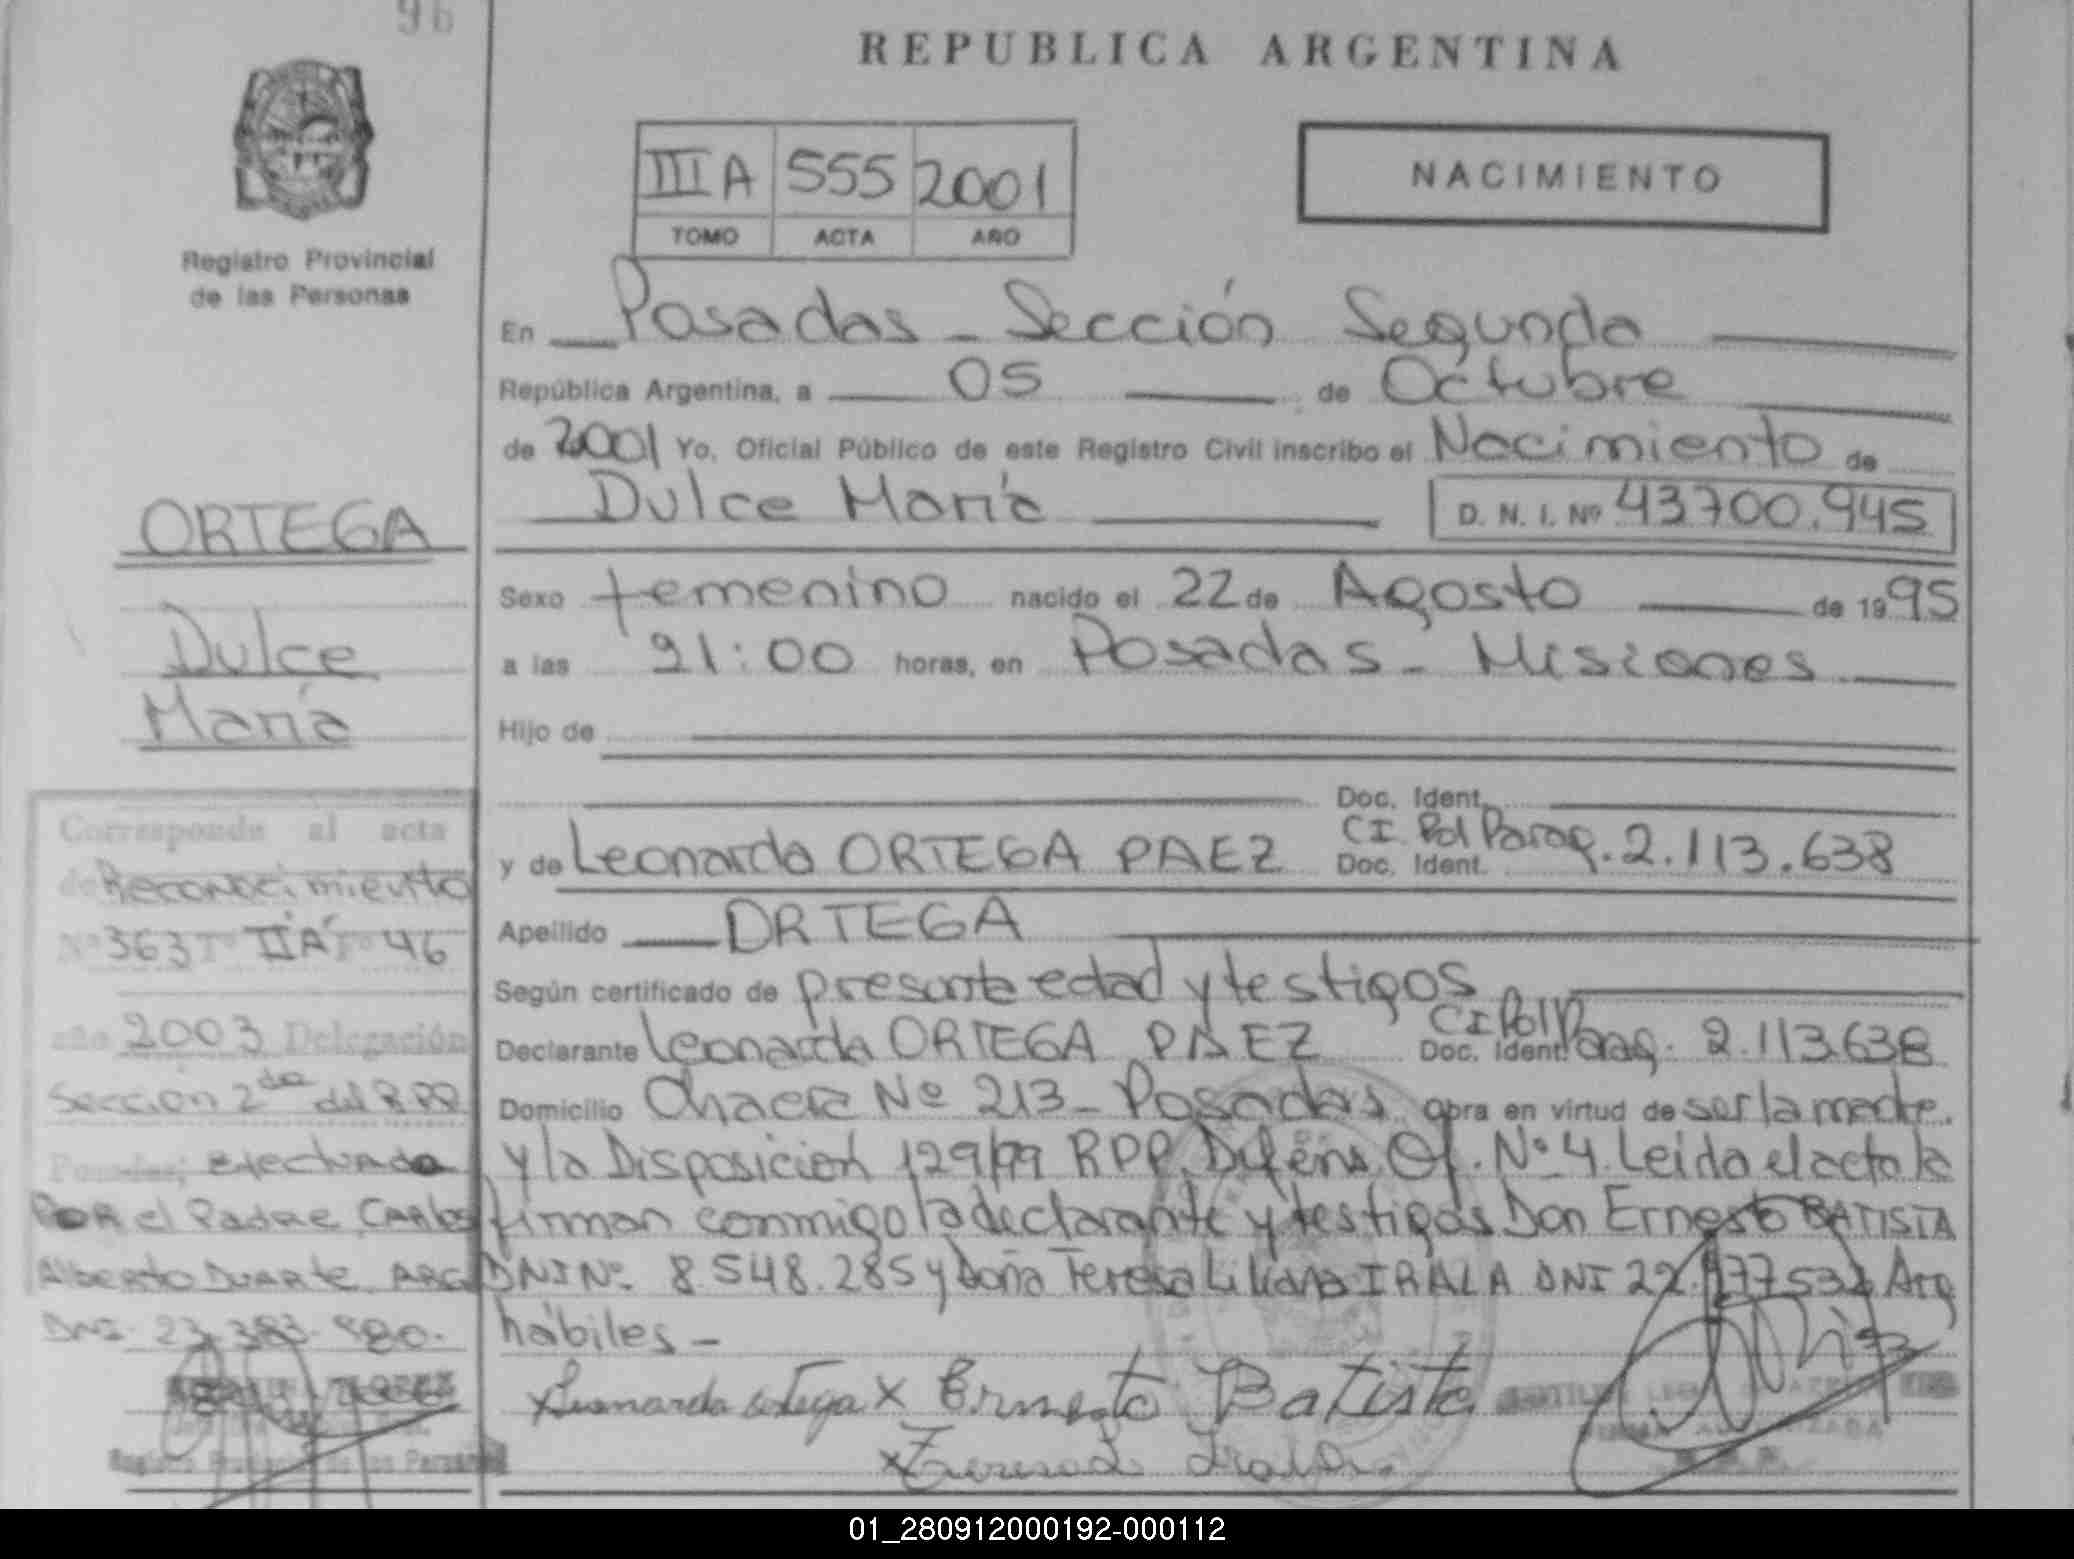 96
REPUBLICA ARGENTINA
III A 555 2001
TOMO ACTA AÑO
NACIMIENTO
Registro Provincial
de las Personas
En Posadas - Sección Segunda
República Argentina, a 05 de Octubre
de 2001 Yo, Oficial Público de este Registro Civil inscribo el Nacimiento de
Dulce María D. N. I. Nº 43700.945
Sexo femenino nacido el 22 de Agosto de 1995
a las 21:00 horas, en Posadas - Misiones
Hijo de
Doc. Ident.
y de Leonarda ORTEGA PAEZ Doc. Ident. CI. Pol Parag. 2.113.638
Apellido ORTEGA
Según certificado de presunta edad y testigos
Declarante Leonarda ORTEGA PAEZ Doc. Ident. CI Pol Parag. 2.113.638
Domicilio Chacra Nº 213 - Posadas obra en virtud de ser la madre.
y la Disposición 129/99 RPP. Defens. Of. Nº 4. Leida el acta la
firman conmigo la declarante y testigos Don Ernesto BATISTA
DNI Nº 8.548.285 y Doña Teresa Liliana IRALA DNI Arg
hábiles -
x Leonarda ortega x Ernesto Batista
x Teresa Irala
ORTEGA
Dulce
María
Corresponde al acta
de Reconocimiento
Nº 363 Tº IIA Fº 46
año 2003 Delegación
Sección 2da del RPP
Posadas; efectuado
POR el Padre CARLOS
Alberto Duarte ARG.
DNI. 23.383.980.
Registro Provincial de las Personas
01_280912000192-000112